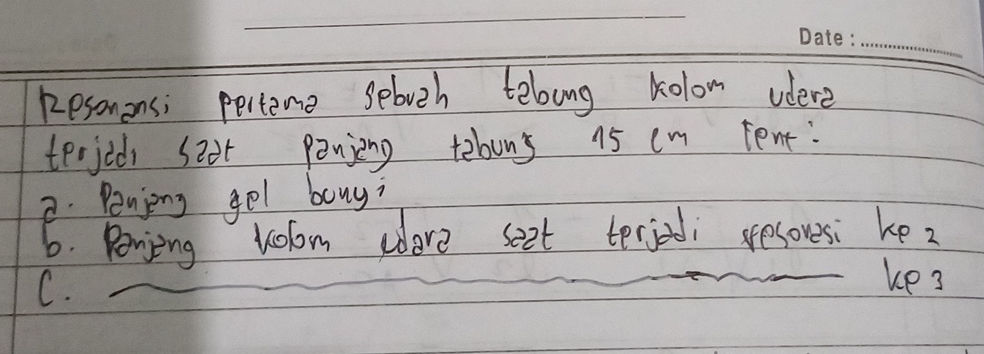 Date :
Resonansi pertama sebuah tabung kolom udara
terjadi saat panjang tabung 15 cm Tent :
a. Panjang gel bunyi
b. Panjang kolom udara saat terjadi resovasi ke 2
C. ke 3